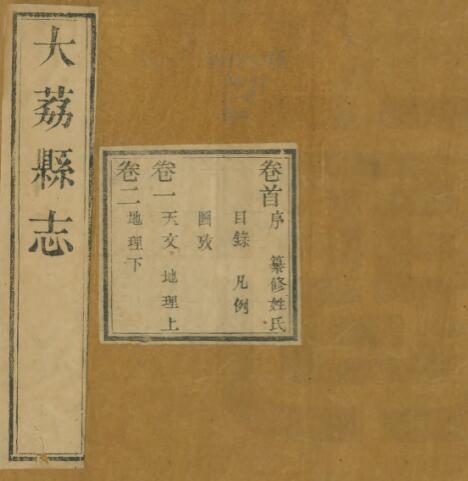 大荔縣志
卷首序 纂修姓氏
目錄 凡例
圖攷
卷一天文 地理上
卷二地理下